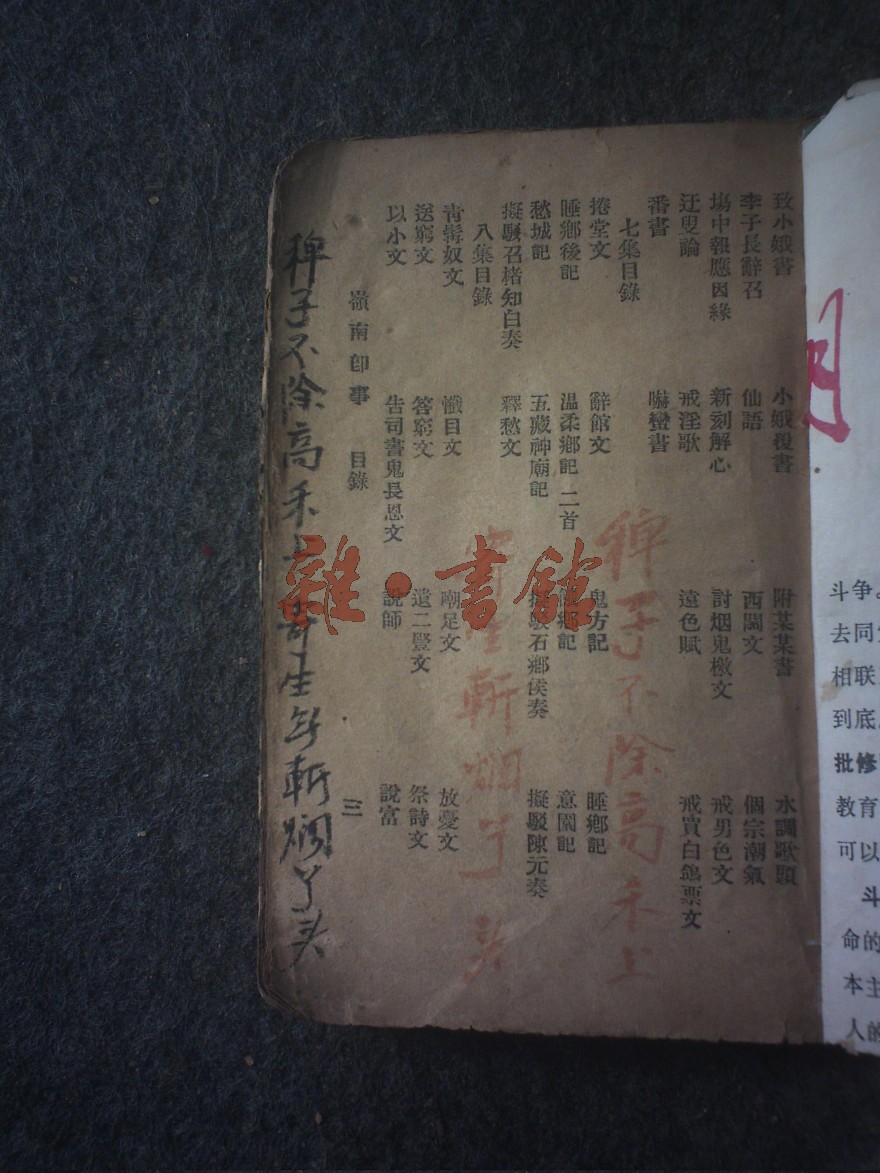 致小娥書 小娥復書 附某某書 水調歌頭
李子長辭召 仙語 西閩文 個宗潮氣
塲中報應因緣 新刻解心 討烟鬼檄文 戒男色文
迂叟論 戒淫歌 遠色賦 戒買白鴿票文
番書 嚇蠻書
七集目錄
捲堂文 辭館文 鬼方記 睡鄉記
睡鄉後記 温柔鄉記 二首 鄉記 意園記
愁城記 五藏神廟記 擬駁石鄉侯奏 擬駁陳元奏
擬駁召楮知白奏 釋愁文
八集目錄
青奴文 懺目文 嘲足文 放憂文
送窮文 答窮文 遣二豎文 祭詩文
以小文 告司書鬼長恩文 說師 說富
嶺南即事 目錄 三
稗子不除高禾上
斬烟丫头
稗子不除高禾 寄生 斬烟丫头
雜·書舘
月
斗争。
去同
相联
到底
批修
教育
可以
斗
命的
本主
人的